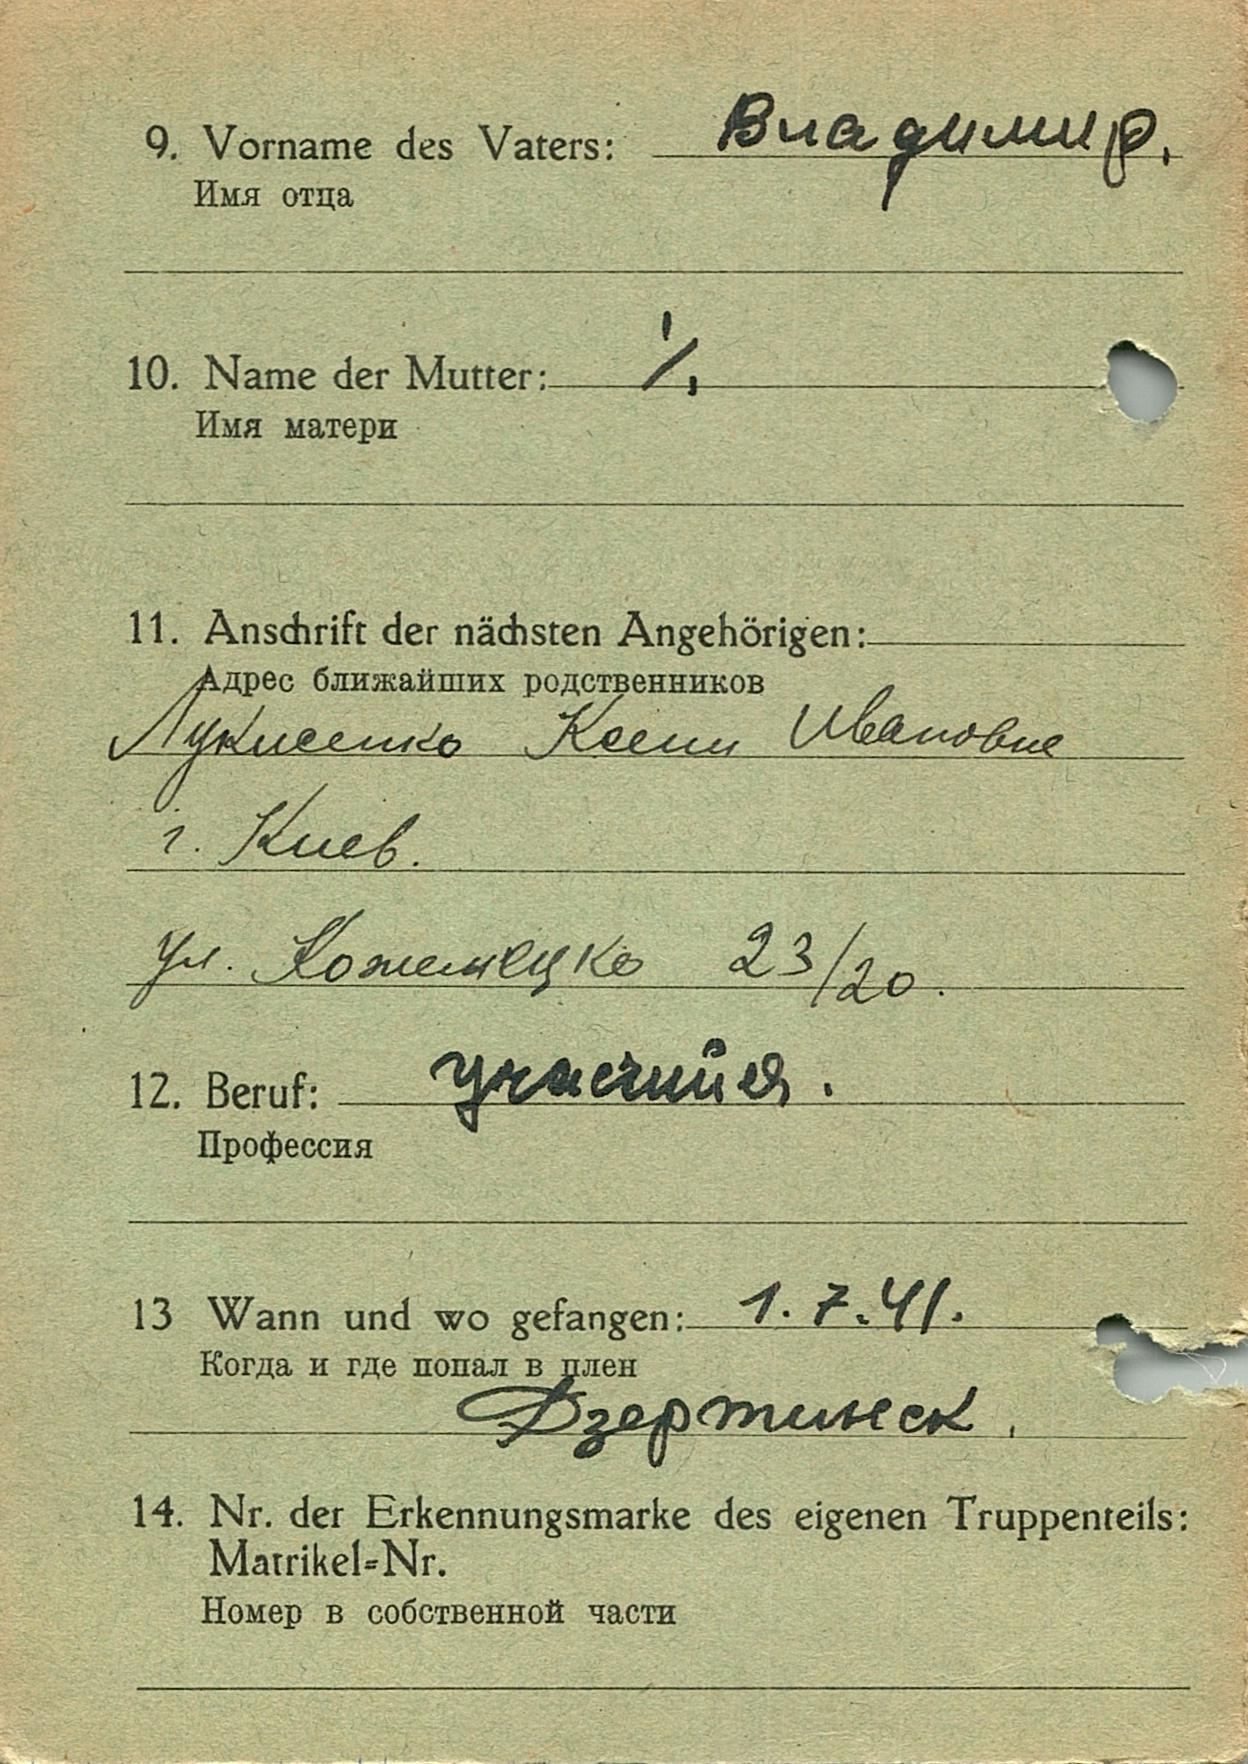 9. Vorname des Vaters: Владимир.
Имя отца
10. Name der Mutter: ⁄.
Имя матери
11. Anschrift der nächsten Angehörigen:
Адрес ближайших родственников
Ксени Ивановне
г. Киев.
ул. 23/20.
12. Beruf:
Профессия
13 Wann und wo gefangen: 1.7.41.
Когда и где попал в плен
Дзертинск.
14. Nr. der Erkennungsmarke des eigenen Truppenteils:
Matrikel=Nr.
Номер в собственной части